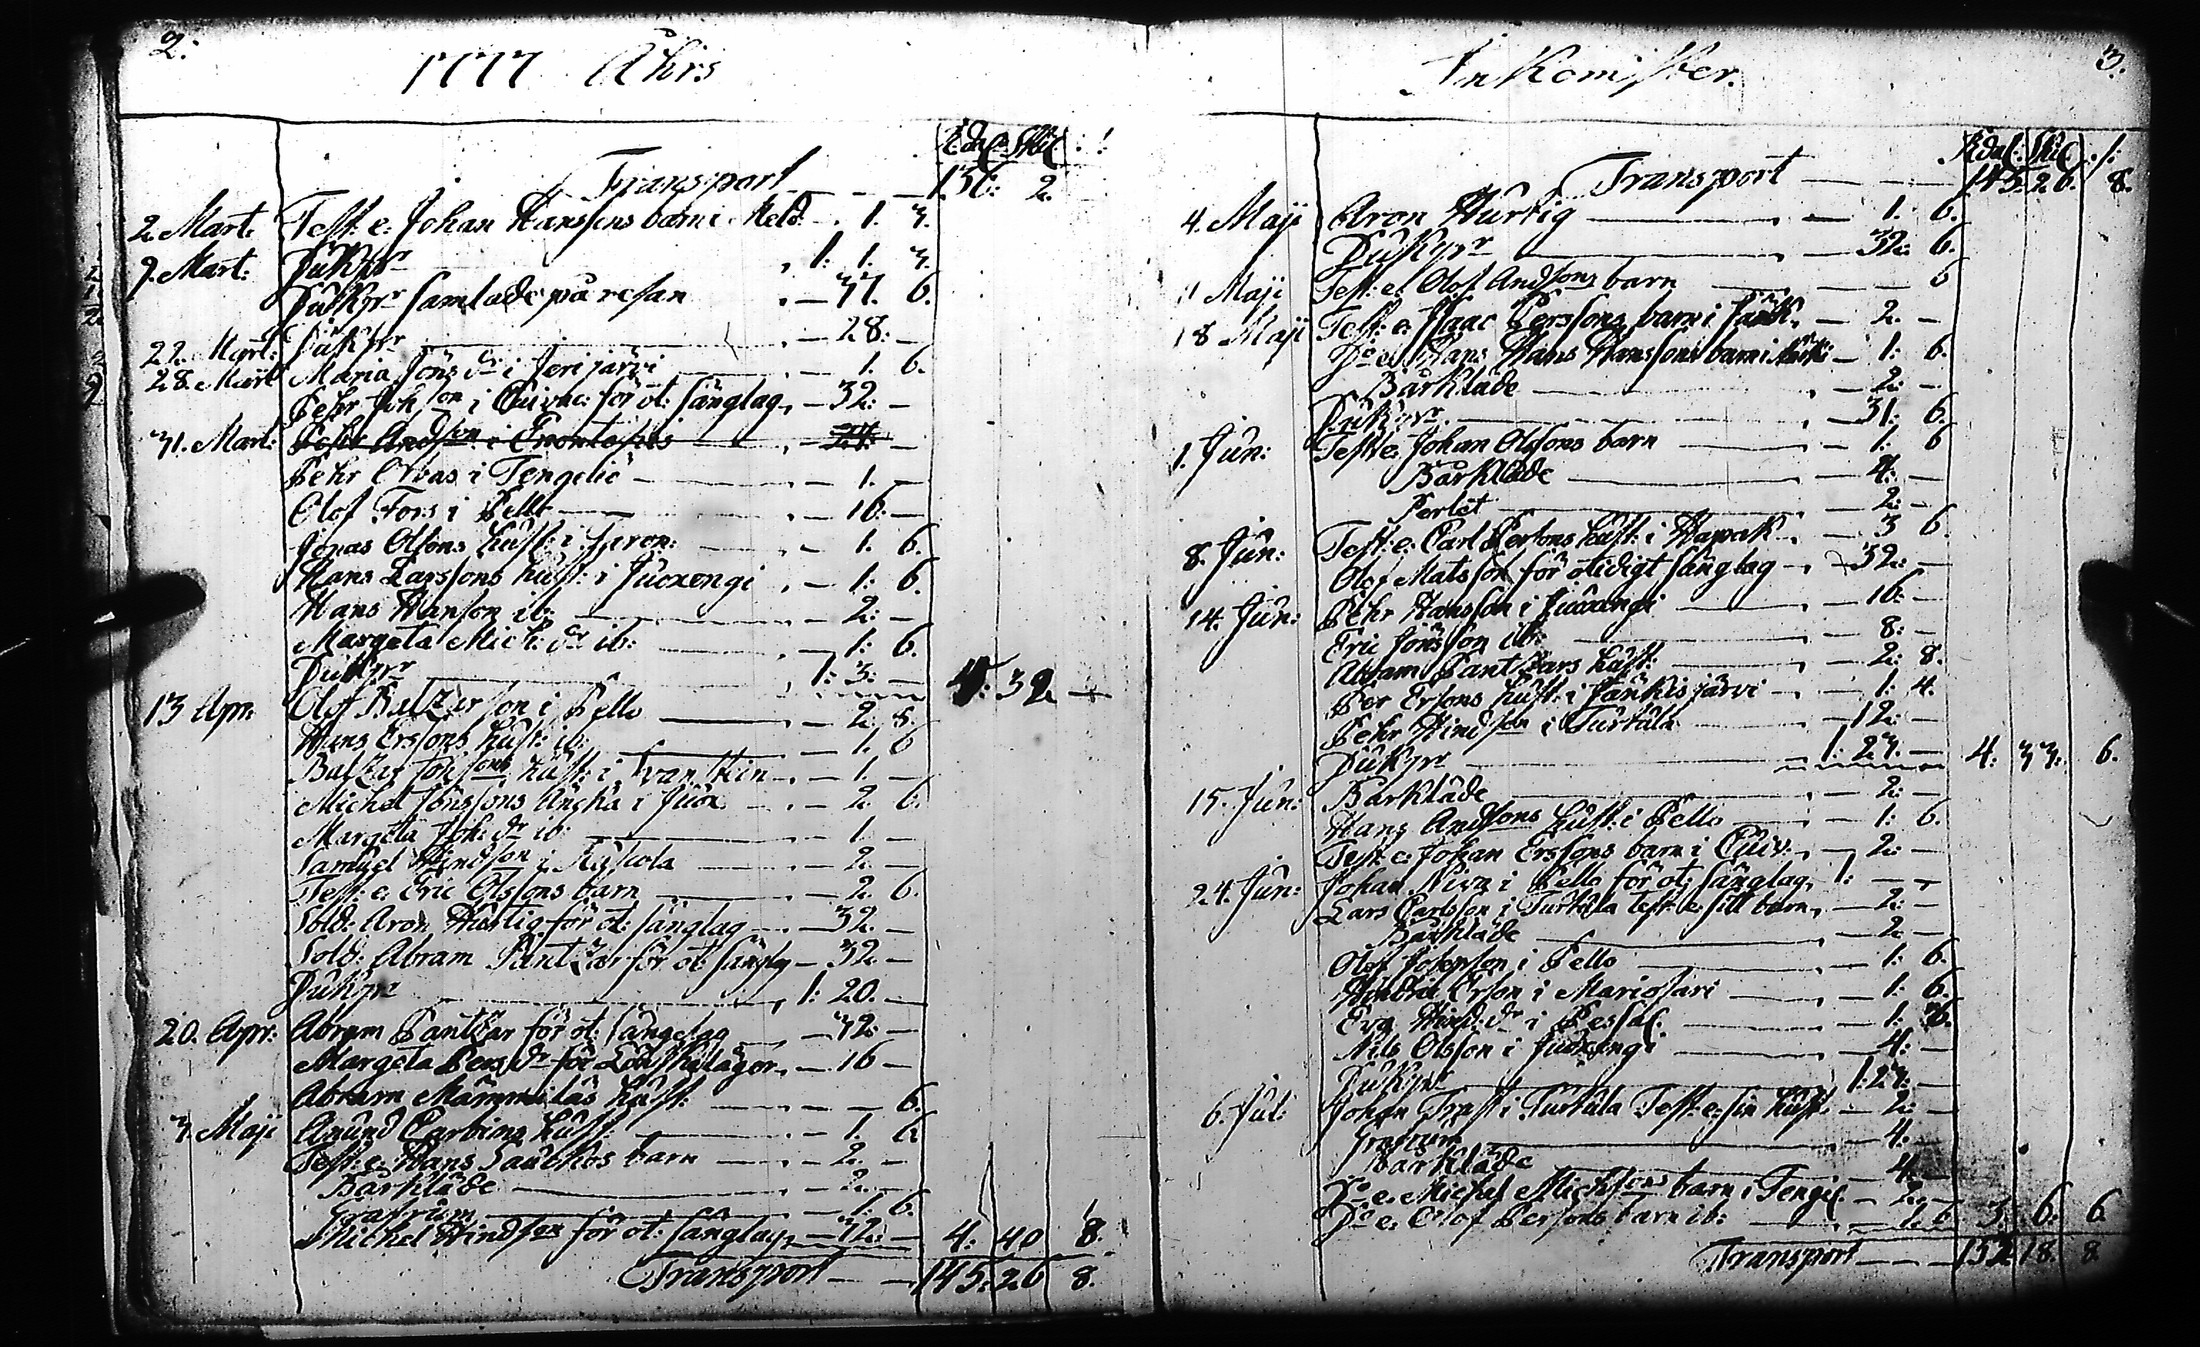 2:
1777 Åhrs
Rdal: Skil :/:
Transport — — — 136: 2.
2. Mart: Test: e: Johan Hanssons barn i Meld. . 1. 3.
9. Mart: Pukpr , 1: 1. 3.
Pukpr samlade på resan . — 37. 6.
22. Mart: Pukpr — 28: —
28. Mart Maria Jönsdr i Jerijärvi — 1. 6.
Pehr Johson i Cuivac: för ot: sänglag, — 32: —
31. Mart: Pehr Andson i Enontekis — 24: —
Pehr Orvas i Tengeliö — 1. —
Olof Fors i Pello — 16: —
Jonas Olsons hust: i Turon: — 1. 6.
Hans Larssons hust: i Juoxengi , — 1: 6.
Hans Hanson ib: — 2: —
Margeta Mich: dr ib: — 1: 6.
Pukpr 1: 3: — 4: 32 —
13 Apr: Olof Baltzarson i Pello — 2. 8.
Hans Erssons hust: ib: — 1. 6
Baltzar Johsons hust: i Svanstein — 1. —
Michel Jönssons Äncka i Juox — 2. 6.
Margeta Joh: dr ib: — 1. —
Samuel Hindson i — 2. —
Test: e: Eric Olssons barn — 2. 6.
Sold: Aron Hurtig för ot: sänglag — 32. —
Sold: Abram Pantzar för ot: sänglg — 32 —
Pukpr , 1: 20. —
20. Apr: Abram Pantzar för ot: sängelag — 32: —
Margeta Persdr för Lönskalägor, — 16 —
Abram Mämmiläs hust: — 6.
3 Maji Anund Carbins hust: — 1. 6.
Test: e: Hans Laurkos barn — 2. —
Bårkläde — 2. —
Grafrum — 1. 6.
Michel Hindson för ot: sänglag, — 32: — 4: 40 8.
Transport — — 145: 26 8.
Inkomster.
3.
Rdal: Skil :/:
Transport — — — 145: 26. 8.
4. Maji Aron Hurtig — 1. 6.
Pukpr — 32: 6.
11 Maji Test: e: Olof Andsons barn — — — 6
18 Maji Test: e: Isaac Perssons barn i Jänk. — 2. —
Do e: Hans Hans Hanssons barn i — 1: 6.
Bårkläde — 2: —
Pukpr. — 31: 6.
1. Jun: Test e: Johan Olsons barn — 1: 6
Bårkläde — 4: —
Perlet — 2: —
8. Jun: Test: e: Carl Persons hust: i Hapak. — 3 6
Olof Matsson för otidigt sänglag — 32: —
14. Jun: Pehr Hansson i Juoxengi — 16: —
Eric Jönsson ib: — 8: —
Abram Pantzars hust: — 2: 8.
Per Ersons hust: i Jänkisjärvi — 1: 4.
Pehr Hindson i Turtula — 12: —
Pukpr 1: 23. — 4: 33: 6.
15. Jun: Bårkläde — 2: —
Hans Andsons hust: i Pello — 1: 6.
Test: e: Johan Erssons barn i Cuiv. , 2: —
24. Jun: Johan Niva i Pello för ot: sänglag, 1: — —
Lars Carlsson i Turtula test: e: sitt barn, — 2: —
Bårkläde — 2 —
Olof Josepson i Pello — 1: 6.
Erson i Mariosari — 1: 6.
Eva Hind: dr i Pessal: — 1: 6.
Nils Olsson i Juoxengi — 4: —
Pukpr 1: 23: —
6. Jul: Johan Trast i Turtula Test: e: sin hust: — 2: —
Grafrum — 4. —
Bårkläde — 4. —
Do e: Michel Michsons barn i Tengel. — 2: —
Do e: Olof Persons barn ib: — 1. 6 3: 6: 6
Transport — — — 153 18. 8